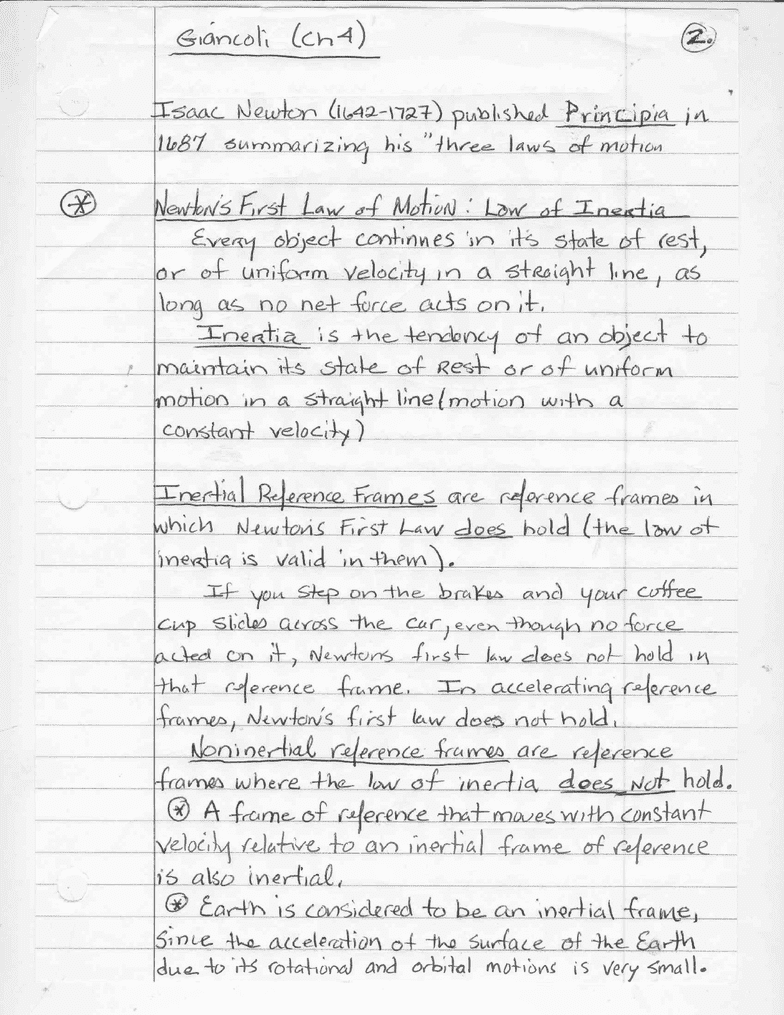 Giancoli (Ch 4)
2.
Isaac Newton (1642-1727) published Principia in
1687 summarizing his "three laws of motion
Newton's First Law of Motion: Law of Inertia
Every object continues in its state of rest,
or of uniform velocity in a straight line, as
long as no net force acts on it.
Inertia is the tendency of an object to
maintain its state of Rest or of uniform
motion in a straight line (motion with a
constant velocity)
Inertial Reference Frames are reference frames in
which Newton's First Law does hold (the law of
inertia is valid in them).
If you step on the brakes and your coffee
cup slides across the car, even though no force
acted on it, Newtons first law does not hold in
that reference frame. In accelerating reference
frames, Newton's first law does not hold.
Noninertial reference frames are reference
frames where the law of inertia does not hold.
* A frame of reference that moves with constant
velocity relative to an inertial frame of reference
is also inertial.
* Earth is considered to be an inertial frame,
since the acceleration of the surface of the Earth
due to its rotational and orbital motions is very small.